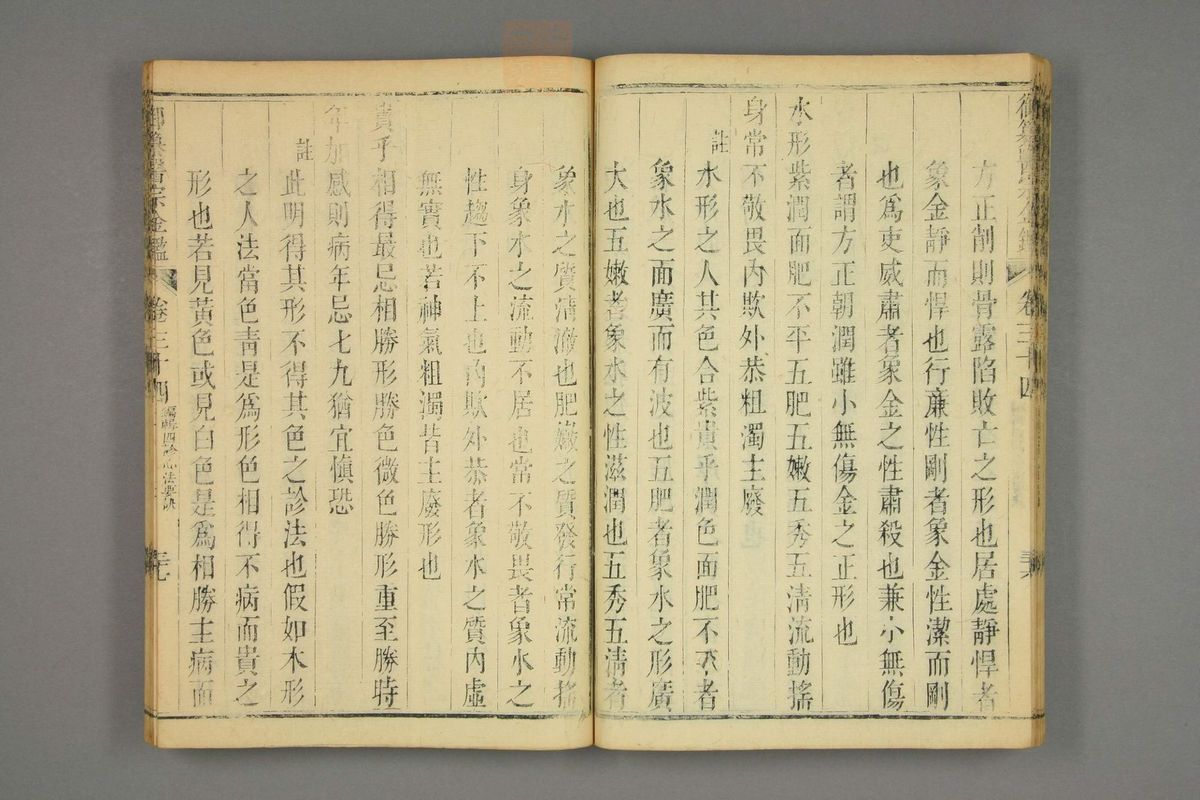 方正削則骨露陷敗亡之形也居處靜悍者
象金靜而悍也行亷性剛者象金性潔而剛
也爲吏威肅者象金之性肅殺也兼小無傷
者謂方正朝潤雖小無傷金之正形也
水形紫潤面肥不平五肥五嫩五秀五清流動搖
身常不敬畏內欺外恭粗濁主廢
註
水形之人其色合紫貴乎潤色面肥不平者
象水之面廣而有波也五肥者象水之形廣
大也五嫩者象水之性滋潤也五秀五清者
卷三十四
象水之質清澈也肥嫩之質發行常流動搖
身象水之流動不居也常不敬畏者象水之
性趨下不上也內欺外恭者象水之質內虛
無實也若神氣粗濁皆主廢形也
貴乎相得最忌相勝形勝色微色勝形重至勝時
年加感則病年忌七九猶宜慎恐
註
此明得其形不得其色之診法也假如木形
之人法當色青是爲形色相得不病而貴之
形也若見黃色或見白色是爲相勝主病而
御纂醫宗金鑑
卷三十四
編輯四診心法要訣